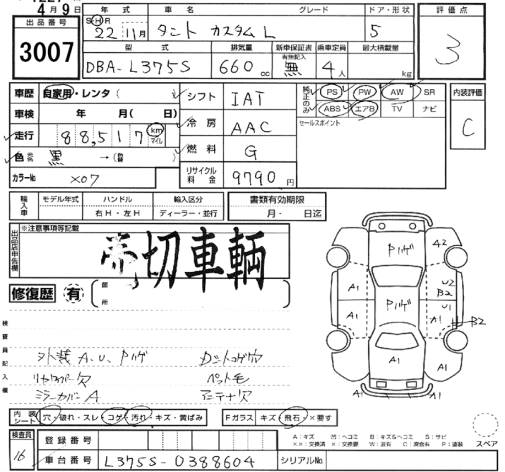 4月9日
出品番号
3007
年式 車名 グレード ドア・形状 評価点
SHR
22年11月 タント カスタムL 5 3
型式 排気量 新車保証書 乗車定員 最大積載量
有無記入
DBA-L375S 660cc 無 4人 kg
車歴 自家用・レンタ( ) シフト IAT 純正のみ PS PW AW SR 内装評価
車検 年 月( 日) 冷房 AAC ABS エアB TV ナビ C
走行 88,517 km マイル 燃料 G セールスポイント
色 黒 →(替 )
カラーNo X07 リサイクル料金 9790円
輸入車 モデル年式 ハンドル 輸入区分 書類有効期限
右H・左H ディーラー・並行 月・ 日迄
出品店申告欄 ※注意事項等記載
売切車輌
修復歴 有 箇所
検査員記入欄
外装A.U.Pハゲ カットコゲ穴
リヤカバー欠 ペット毛
ミラーカバーA アンテナ欠
Pハゲ 42
A1 Pハゲ U2 B2
A1 U1 A1 B2
A1 A1
内装シート 穴・破れ・スレ・コゲ・汚れ・キズ・黄ばみ Fガラス キズ・飛石・×要す
検査員 登録番号
16 車台番号 L375S-0388604 シリアルNo
スペア